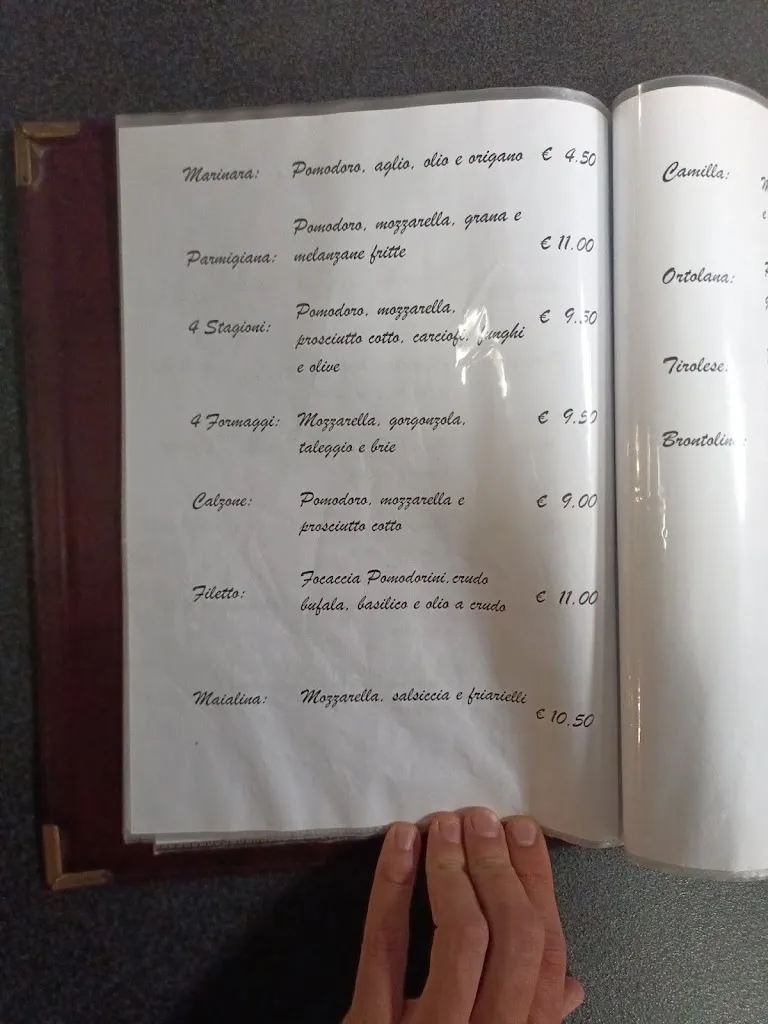 Marinara: Pomodoro, aglio, olio e origano € 4.50
Pomodoro, mozzarella, grana e
Parmigiana: melanzane fritte € 11.00
4 Stagioni: Pomodoro, mozzarella, € 9.50
prosciutto cotto, carciofi, funghi
e olive
4 Formaggi: Mozzarella, gorgonzola, € 9.50
taleggio e brie
Calzone: Pomodoro, mozzarella e € 9.00
prosciutto cotto
Focaccia Pomodorini,crudo
Filetto: bufala, basilico e olio a crudo € 11.00
Maialina: Mozzarella, salsiccia e friarielli
€ 10.50
Camilla:
Ortolana:
Tirolese: